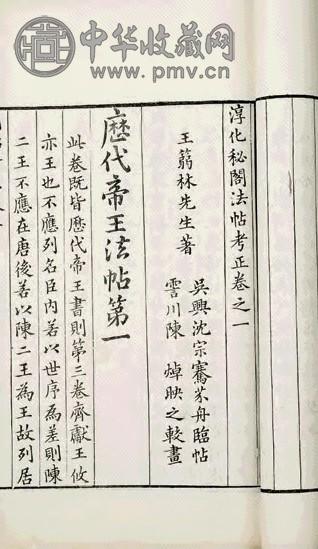 中华收藏网
www.pmv.cn
淳化秘閣法帖考正卷之一
吳興沈宗騫芥舟臨帖
王蒻林先生著
霅川陳焯映之較畫
歷代帝王法帖第一
此卷既皆歷代帝王書則第三卷齊獻王攸
亦王也不應列名臣内若以世序為差則陳
二王不應在唐後若以陳二王為王故列居